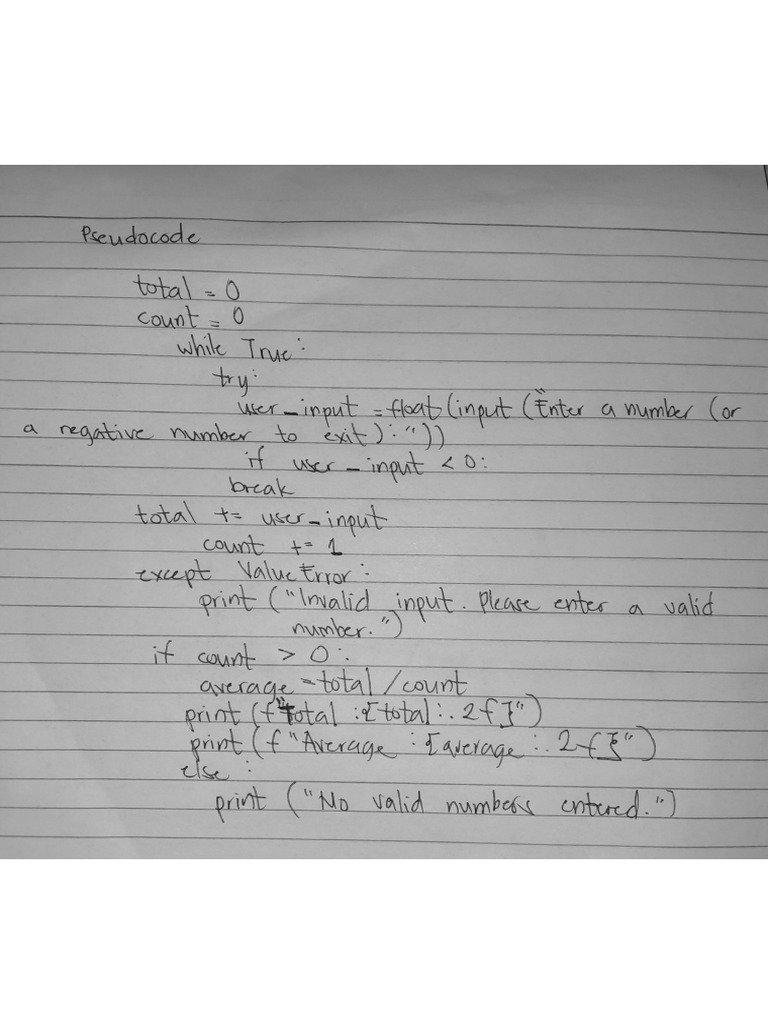 Pseudocode
total = 0
count = 0
while True:
try:
user_input = float(input("Enter a number (or
a negative number to exit): "))
if user_input < 0:
break
total += user_input
count += 1
except ValueError:
print ("Invalid input. Please enter a valid
number.")
if count > 0:
average = total / count
print (f"Total : {total:.2f}")
print (f"Average : {average:.2f}")
else:
print ("No valid numbers entered.")